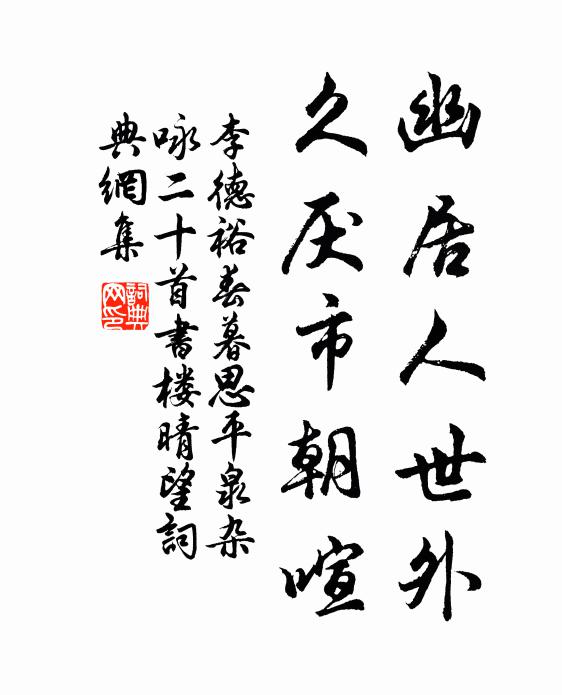 幽居人世外
久厌市朝喧
李德裕春暮思平泉杂
咏二十首書楼晴望詞
典網集
詞典网印